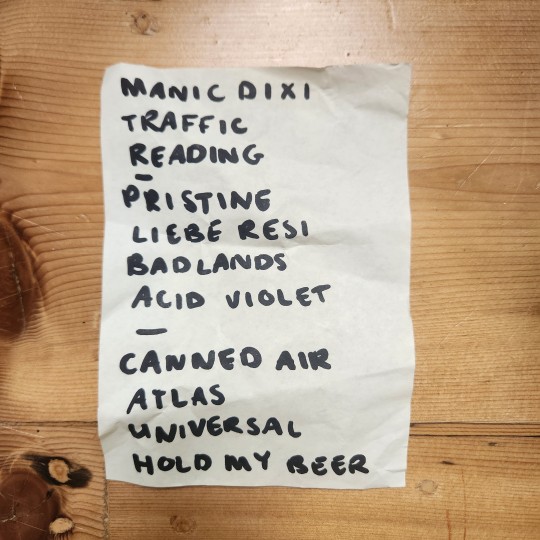 MANIC DIXI
TRAFFIC
READING
—
PRISTINE
LIEBE RESI
BADLANDS
ACID VIOLET
—
CANNED AIR
ATLAS
UNIVERSAL
HOLD MY BEER